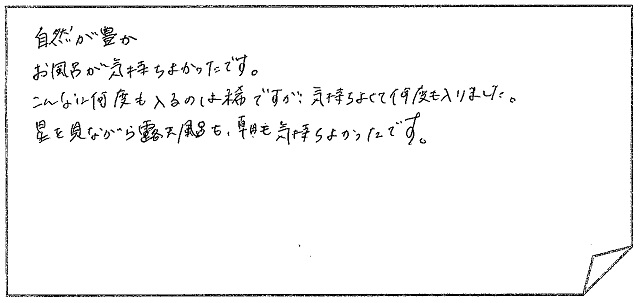 自然が豊か
お風呂が気持ちよかったです。
こんなに何度も入るのは稀ですが、気持ちよくて何度も入りました。
星を見ながら露天風呂も、朝も気持ちよかったです。